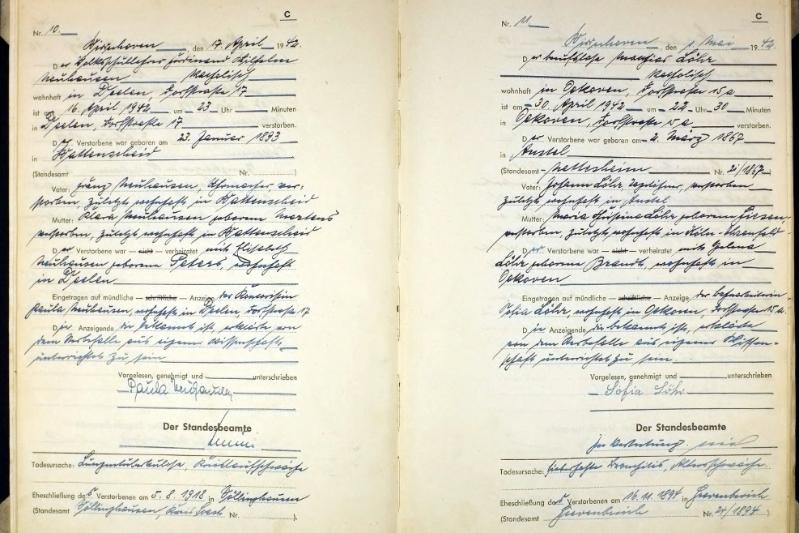 C
Nr. 10.
Kirchhoven, den 17. April 1942
Der Volksschullehrer Ferdinand Wilhelm
Neuhausen Katholisch
wohnhaft in Deelen, Dorfstraße 17
ist am 16. April 1942 um 23 Uhr Minuten
in Deelen, Dorfstraße 17 verstorben.
Der Verstorbene war geboren am 23. Januar 1893
in Wattenscheid
(Standesamt Nr. )
Vater: Franz Neuhausen, Uhrmacher, ver-
storben, zuletzt wohnhaft in Wattenscheid
Mutter: Klara Neuhausen geborene Mertens
verstorben, zuletzt wohnhaft in Wattenscheid
Der Verstorbene war — nicht — verheiratet mit Elisabeth
Neuhausen geborene Peters, wohnhaft
in Deelen
Eingetragen auf mündliche — schriftliche — Anzeige der
Paula Neuhausen, wohnhaft in Deelen Dorfstraße 17
Die Anzeigende die bekannt ist, erklärte von
dem Sterbefalle aus eigener Wissenschaft
unterrichtet zu sein
Vorgelesen, genehmigt und unterschrieben
Paula Neuhausen
Der Standesbeamte
Todesursache: Lungentuberkulose, Kreislaufschwäche
Eheschließung des Verstorbenen am 5. 8. 1918 in Göllinghausen
(Standesamt Göllinghausen, Nr. )
C
Nr. 11
Kirchhoven, den 1. Mai 1942
Der berufslose Matthias Löhr
Katholisch
wohnhaft in Oekoven, Dorfstraße 15 a
ist am 30. April 1942 um 22 Uhr 30 Minuten
in Oekoven, Dorfstraße 15 a verstorben.
Der Verstorbene war geboren am 2. März 1867
in Anstel
(Standesamt Nettesheim Nr. 21/1867)
Vater: Johann Löhr, Tagelöhner, verstorben
zuletzt wohnhaft in Anstel
Mutter: Maria Christina Löhr geborene
verstorben, zuletzt wohnhaft in Köln-Ehrenfeld
Der Verstorbene war — nicht — verheiratet mit Helena
Löhr geborene Brandt, wohnhaft in
Oekoven
Eingetragen auf mündliche — schriftliche — Anzeige der
Sofia Löhr, wohnhaft in Oekoven, Dorfstraße 15 a.
Die Anzeigende die bekannt ist, erklärte
von dem Sterbefalle aus eigener Wissen-
schaft unterrichtet zu sein.
Vorgelesen, genehmigt und unterschrieben
Sofia Löhr
Der Standesbeamte
In Vertretung
Todesursache: fieberhafte Bronchitis, Altersschwäche
Eheschließung des Verstorbenen am 16. 11. 1894 in Grevenbroich
(Standesamt Grevenbroich Nr. 24/1894